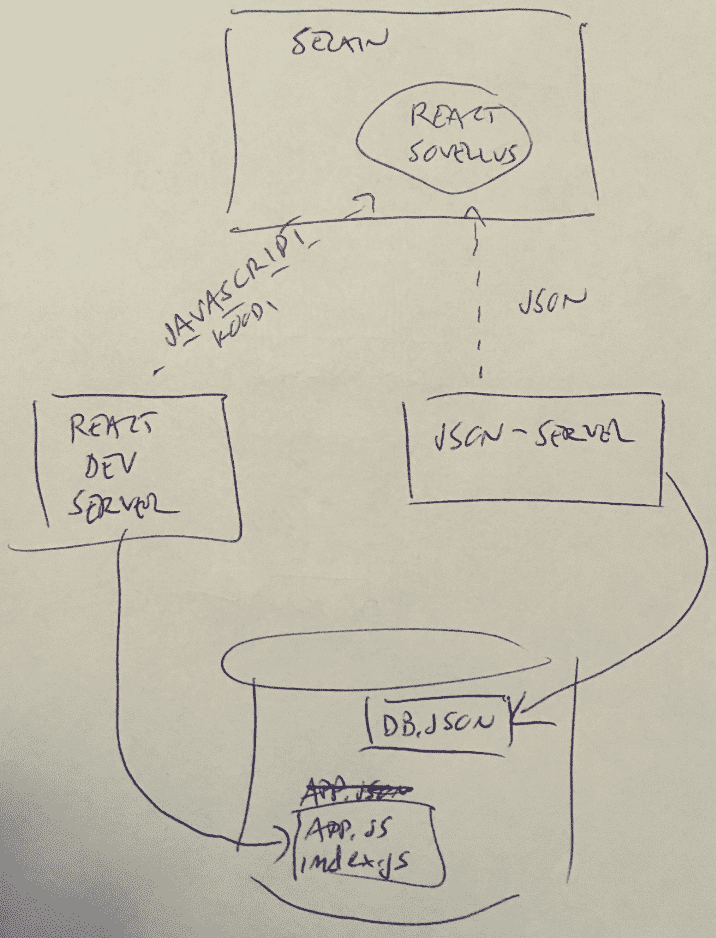 SELAIN
REACT
SOVELLUS
JAVASCRIPT
KOODI
JSON
REACT
DEV
SERVER
JSON-SERVER
DB.JSON
APP.JSON
APP.JS
index.js